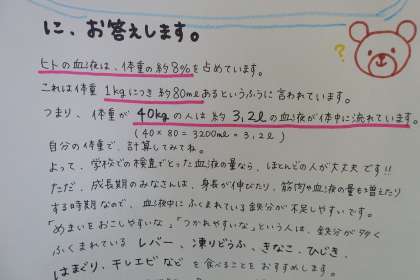 に、お答えします。
?
ヒトの血液は、体重の約8%を占めています。
これは体重1kgにつき約80mlあるというふうに言われています。
つまり、体重が40kgの人は約3,2ℓの血液が体中に流れています。
(40×80=3200ml=3,2ℓ)
自分の体重で、計算してみてね。
よって、学校での検査でとった血液の量なら、ほとんどの人が大丈夫です!!
ただ、成長期のみなさんは、身長が伸びたり、筋肉や血液の量も増えたり
する時期なので、血液中にふくまれている鉄分が不足しやすいです。
「めまいをおこしやすいな」「つかれやすいな」という人は、鉄分が多く
ふくまれている レバー、凍りどうふ、きなこ、ひじき、
はまぐり、干しエビなどを食べることをおすすめします。